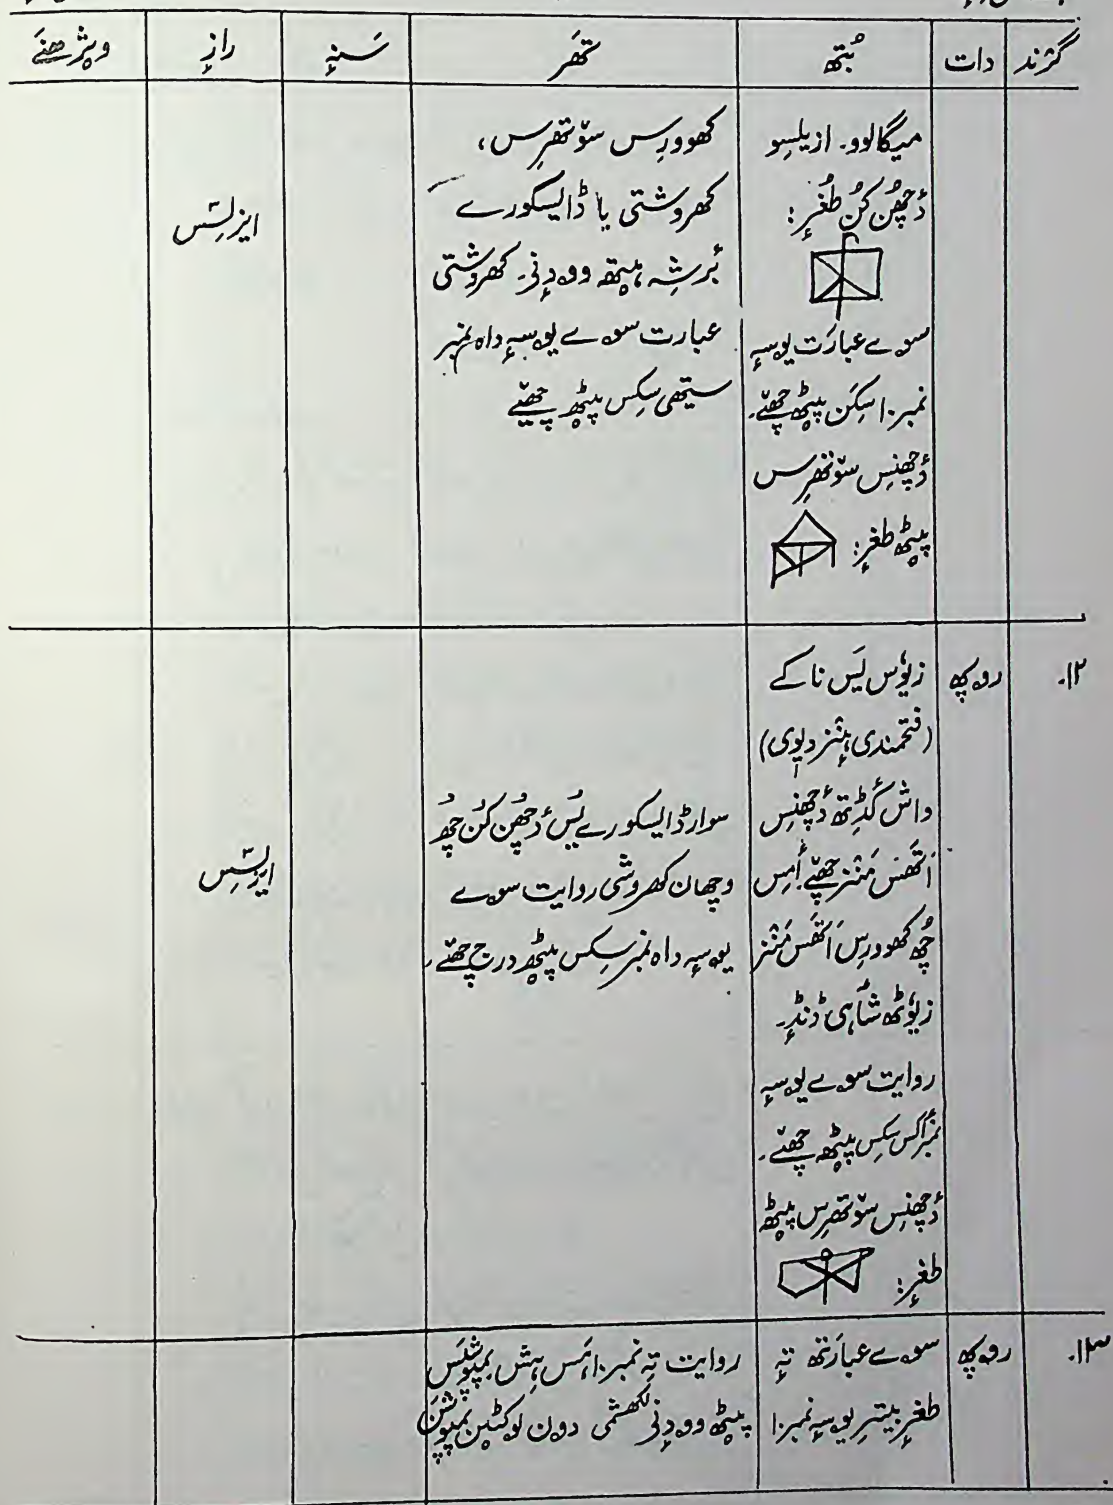 گرٛند دات بُتھ تھَر سَنہٕ رازٕ ویژھنَے
میگالوو۔ ازیلِسو
دٔچھُن کُن طُغرٕ:
سوے عبارَت یوسہٕ
نمبر ۱ سِکَن پیٹھ چھٔے۔
دٔچھنِس سۆتھرِس
پیٹھ طغرٕ:
کھوورِس سۆتھرِس،
کھروشتی یا ڈایسکورے
بُرشہِ ہیتھ وودنی۔ کھروشتی
عبارت سوے یوسہٕ داہ نمبر
سیتھی سِکِس پیٹھ چھٔے
ایزلِسَس
۱۲۔ روپھ
زیوٗس یَس ناکے
(فتحمندی ہٕنٛز دیوی)
واش کٔڈِتھ دٔچھنِس
اَتھَس مَنٛز چھٔے۔ اَمِس
چھُ کھوورِس اَتھَس مَنٛز
زیوٗٹھ شٲہی ڈنڈٕ۔
روایت سوے یوسہٕ
نمبر اکِس سِکِس پیٹھ چھٔے۔
دٔچھنِس سۆتھرِس پیٹھ
طغرٕ:
سوار ڈایسکورے یُس دٔچھُن کُن چھُ
وچھان کھروشی روایت سوے
یوسہٕ داہ نمبر سِکِس پیٹھ درج چھٔے۔
ایزلِسَس
۱۳۔ روپھ
سوے عبارَتھ تہٕ
طغرٕ بیترِ یوسہٕ نمبر ۱
روایت تہٕ نمبر ۱ ہَس ہِش پمپوشَس
پیٹھ وودنی لکھشمی دون لوکٹین پمپوشَن